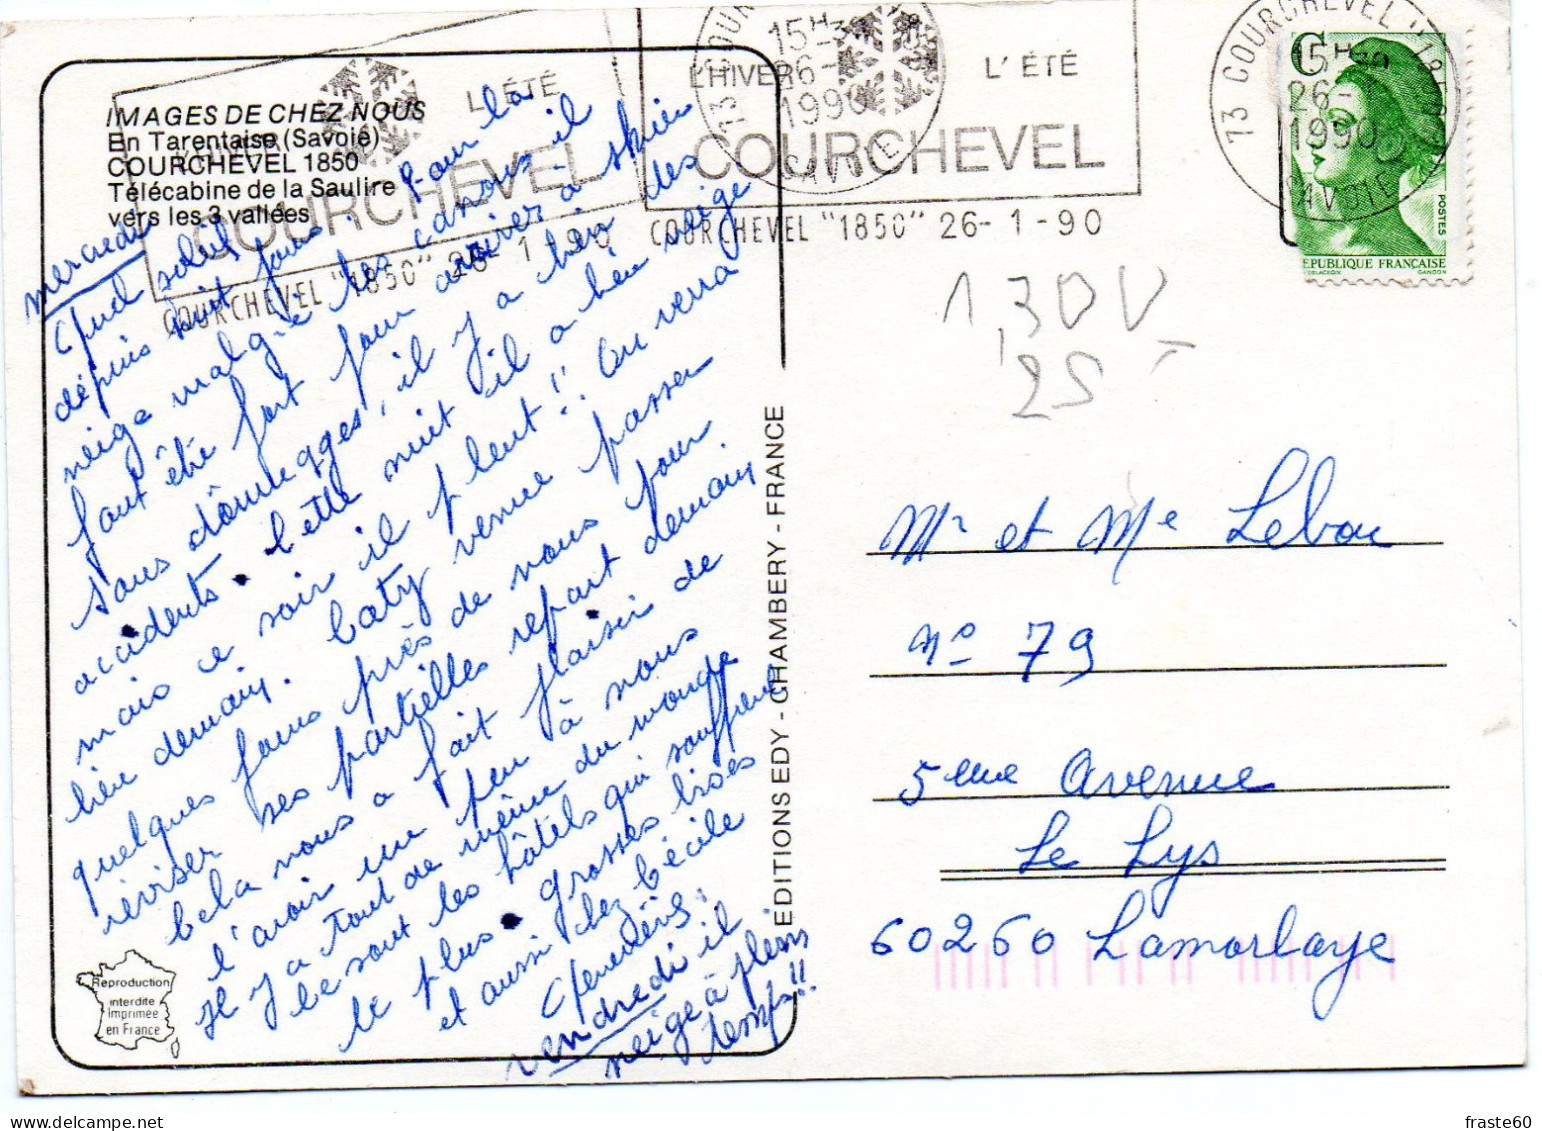 IMAGES DE CHEZ NOUS
En Tarentaise (Savoie)
COURCHEVEL 1850
Télécabine de la Saulire
vers les 3 vallées
L'ÉTÉ
COURCHEVEL
COURCHEVEL "1850" 26- 1 -90
L'HIVER
L'ÉTÉ
COURCHEVEL
COURCHEVEL "1850" 26- 1 -90
73 COURCHEVEL "1850"
15H
26-
1990
SAVOIE
C
POSTES
REPUBLIQUE FRANÇAISE
DELACROIX GANDON
mercredi
Quel soleil
depuis huit jours. Pour la
neige malgré les canons il
faut être fort pour arriver à skier
sans dommages, il y a bien des
accidents. Cette nuit il a bien neigé
mais ce soir il pleut!! On verra
bien demain. Caty venue passer
quelques jours près de nous pour
réviser ses partielles repart demain
Cela nous a fait plaisir de
l'avoir un peu à nous
Il y a tout de même du monde
Ce sont les hôtels qui souffrent
le plus. grosses bises
et aussi chez Cécile
Geneviève.
vendredi il
neige à plein
temps!!
EDITIONS EDY - CHAMBERY - FRANCE
Reproduction
interdite
Imprimée
en France
1,30 V
25 -
Mr et Me Lebou
No 79
5eme Avenue
Le Lys
60260 Lamorlaye
fraste60